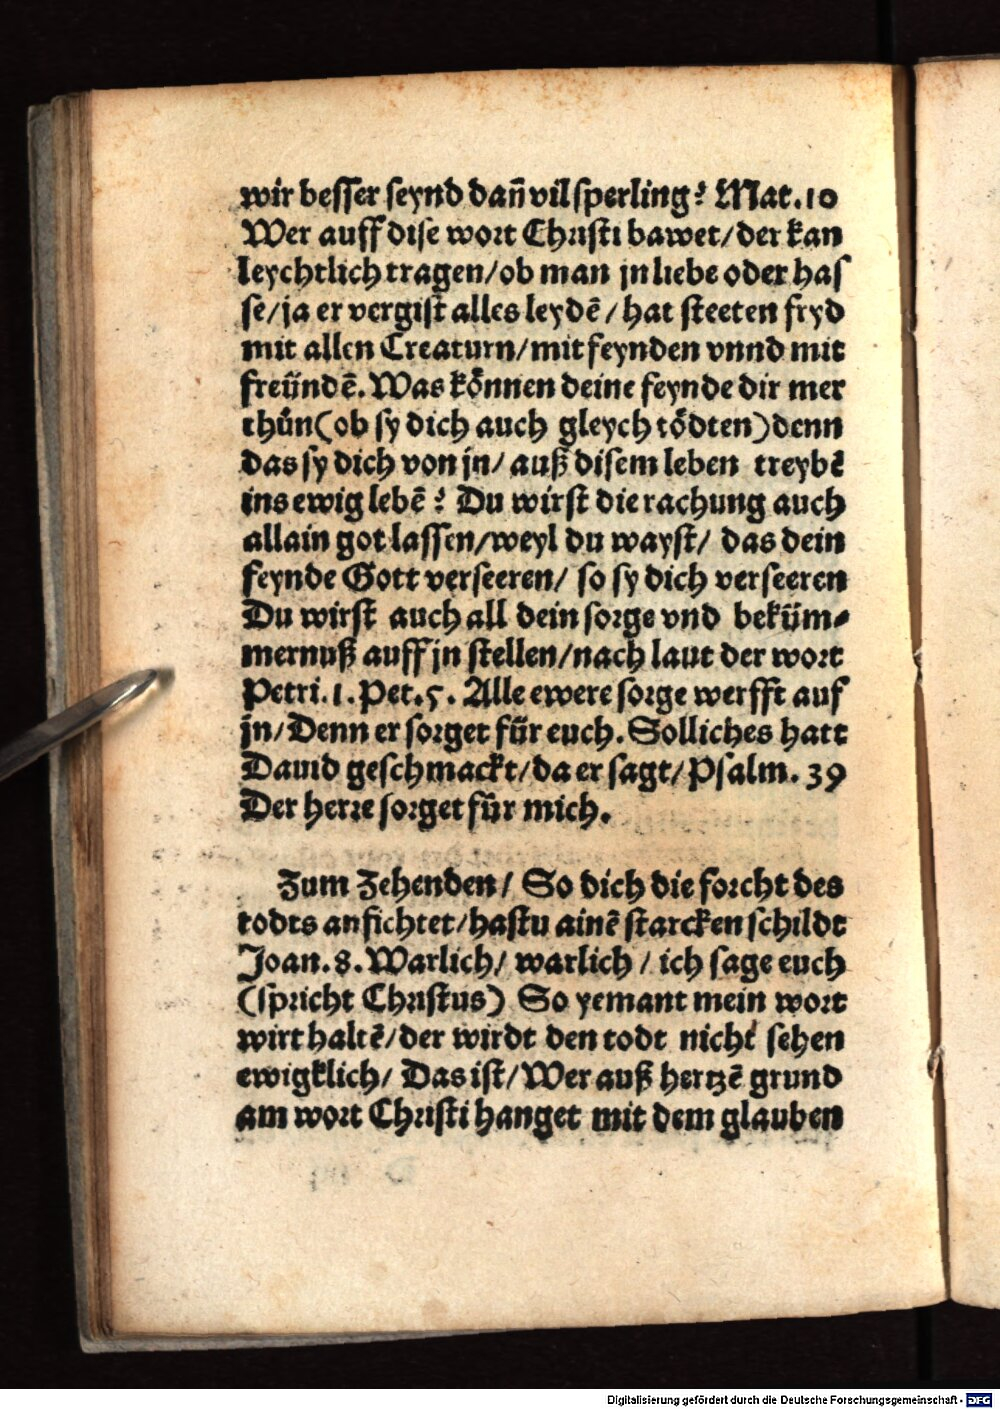 wir besser seynd dañ vil sperling? Mat. 10
Wer auff dise wort Christi bawet/ der kan
leychtlich tragen/ ob man jn liebe oder has
se/ ja er vergist alles leydē/ hat steeten fryd
mit allen Creaturn/ mit feynden vnnd mit
freündē. Was können deine feynde dir mer
thůn (ob sy dich auch gleych tödten) denn
das sy dich von jn/ auß disem leben treybē
ins ewig lebē? Du wirst die rachung auch
allain got lassen/ weyl du wayst/ das dein
feynde Gott verseeren/ so sy dich verseeren
Du wirst auch all dein sorge vnd beküm⸗
mernuß auff jn stellen/ nach laut der wort
Petri. 1. Pet. 5. Alle ewere sorge werfft auf
jn/ Denn er sorget für euch. Solliches hatt
Dauid geschmackt/ da er sagt/ Psalm. 39
Der herre sorget für mich.
Zum Zehenden/ So dich die forcht des
todts anfichtet/ hastu ainē starcken schildt
Joan. 8. Warlich/ warlich/ ich sage euch
(spricht Christus) So yemant mein wort
wirt haltē/ der wirdt den todt nicht sehen
ewigklich/ Das ist/ Wer auß hertzē grund
am wort Christi hanget mit dem glauben
Digitalisierung gefördert durch die Deutsche Forschungsgemeinschaft - DFG